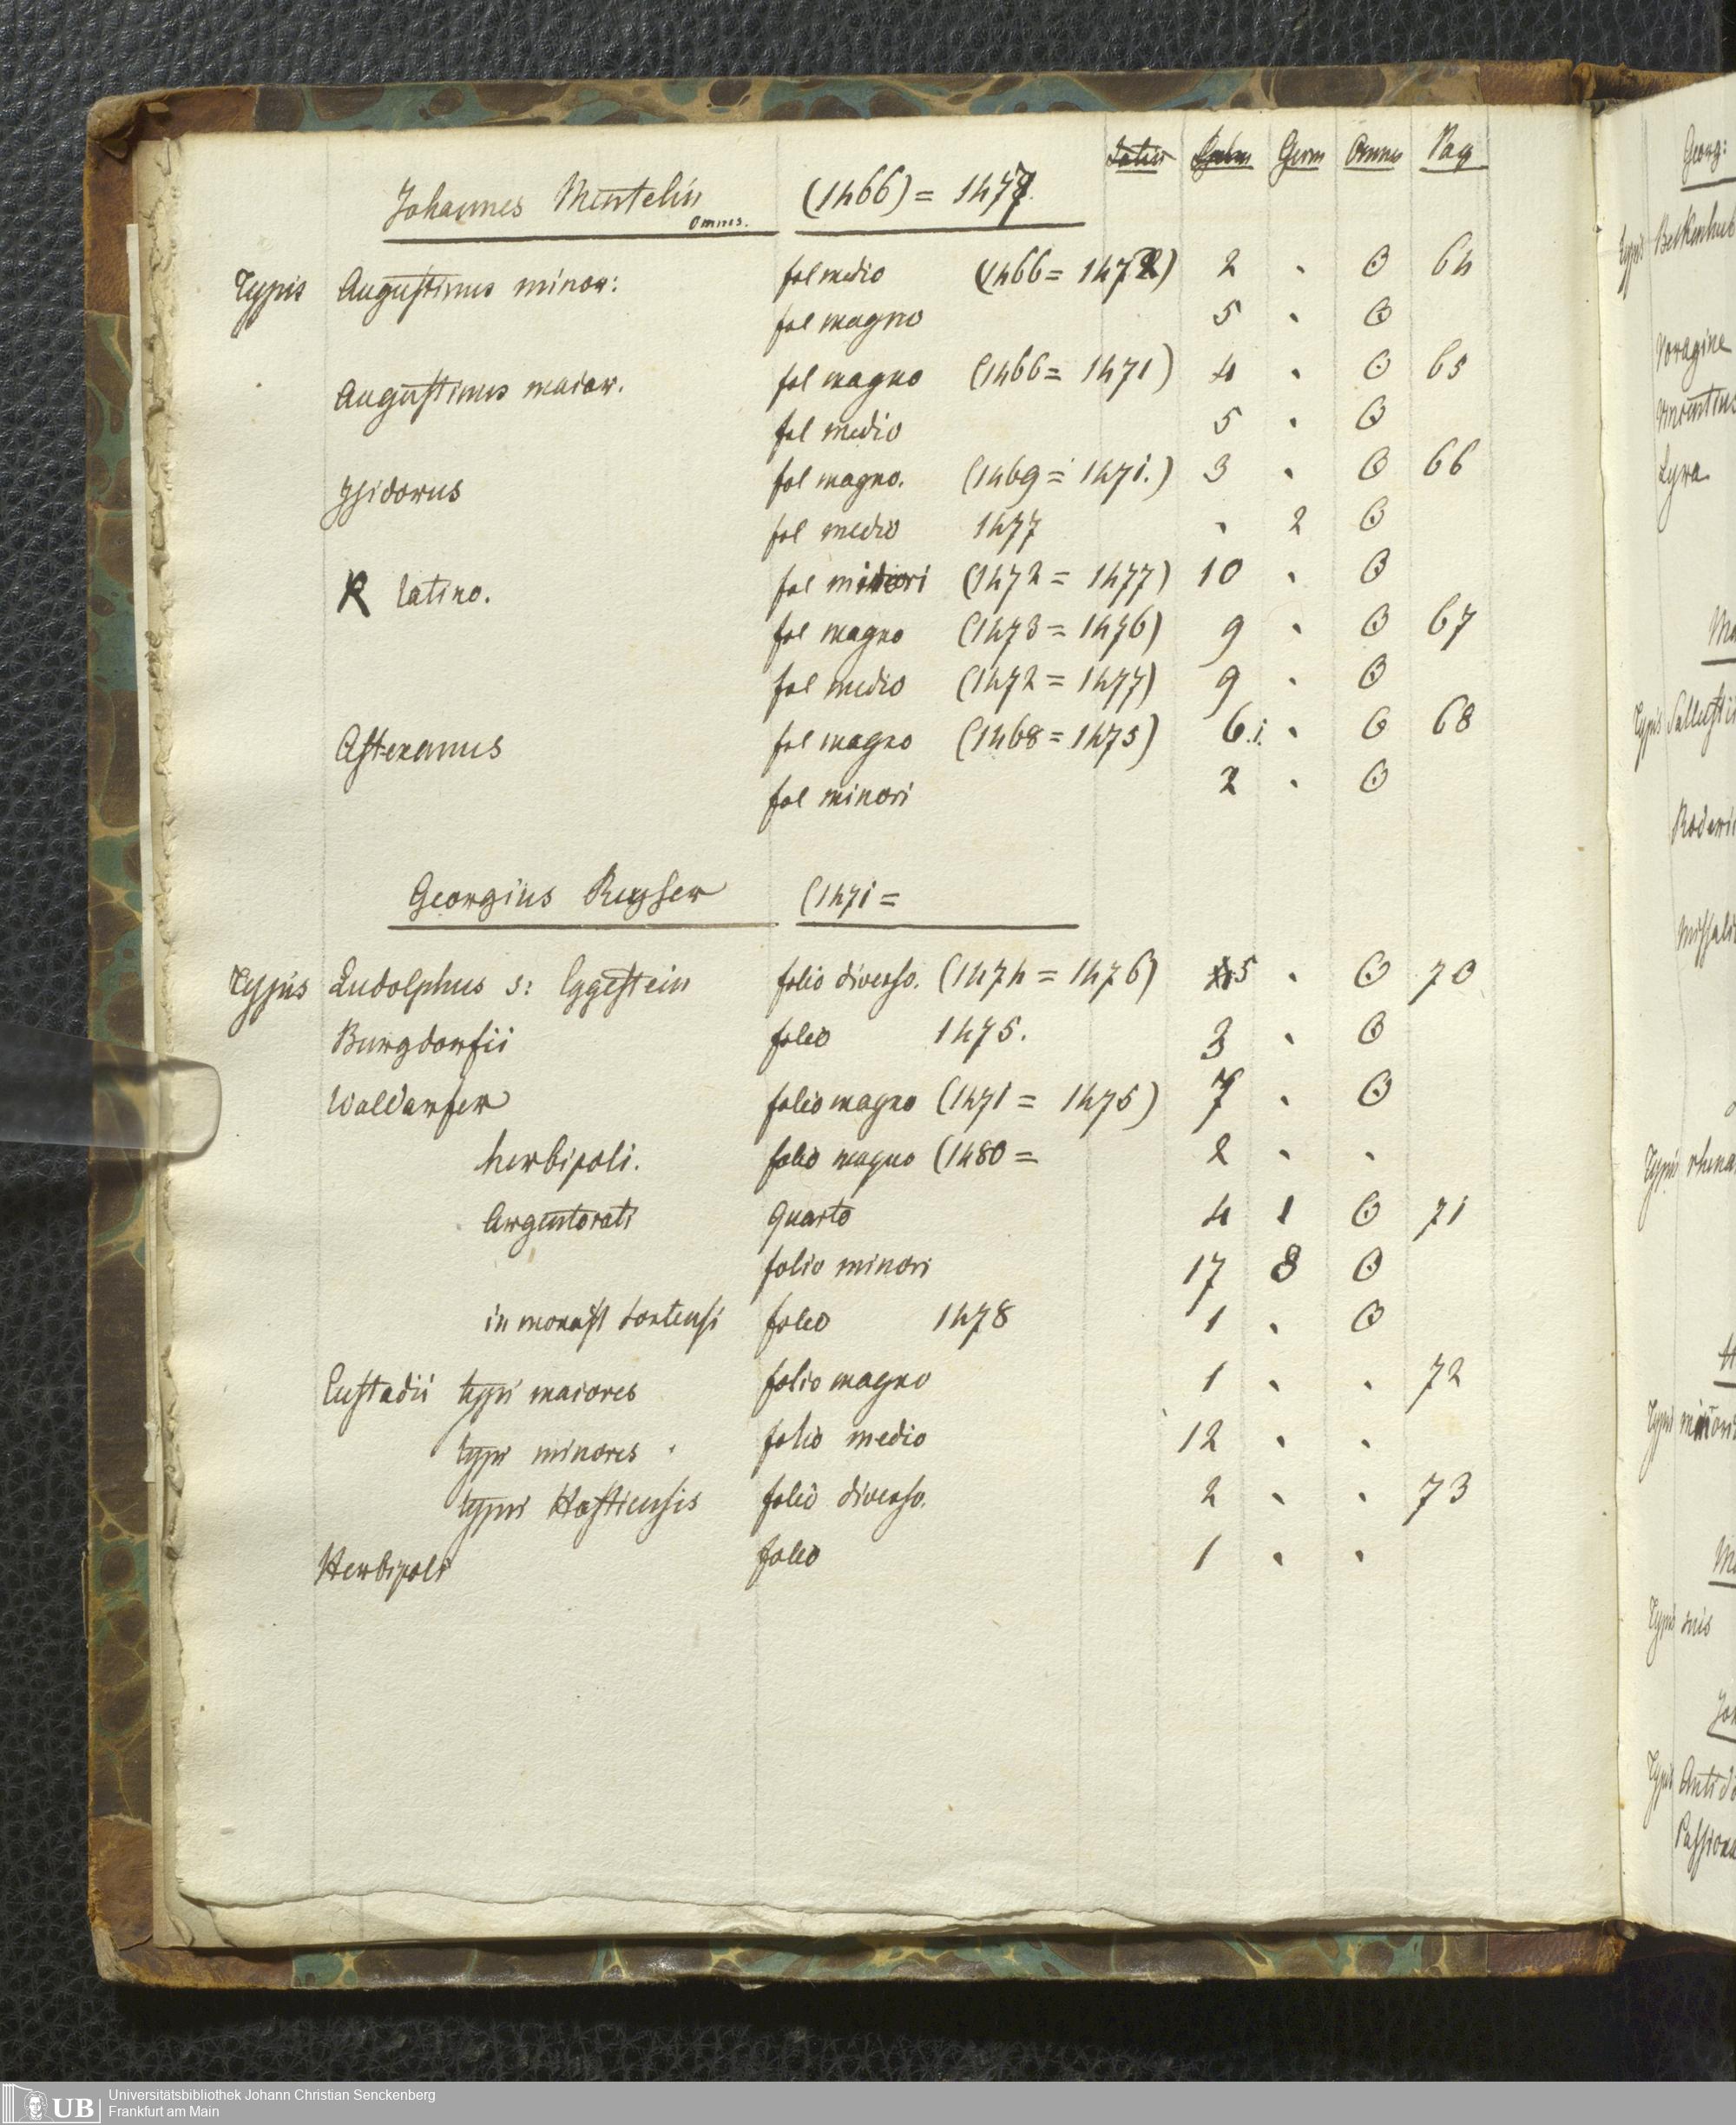 Latin Germ Omnes Pag
Johannes Mentelin (1466) = 1477.
Omnes.
Typis Augustinus minor: fol medio (1466 = 1472) 2 . O 64
fol magno 5 . O
Augustinus maior. fol magno (1466 = 1471) 4 . O 65
fol medio 5 . O
Ysidorus fol magno. (1469 = 1471.) 3 . O 66
fol medio 1477 . 2 O
R latino. fol minori (1472 = 1477) 10 . O
fol magno (1473 = 1476) 9 . O 67
fol medio (1472 = 1477) 9 . O
Astexanus fol magno (1468 = 1475) 6.i. . O 68
fol minori 2 . O
Georgius Reyser (1471 =
Typis Ludolphus s: Eggestein folio diverso. (1474 = 1476) 5 . O 70
Burgdorfii folio 1475. 3 . O
Waldarfer folio magno (1471 = 1475) 7 . O
herbipoli. folio magno (1480 = 2 . .
Argentorati Quarto 4 1 O 71
folio minori 17 8 O
in monast sortensi folio 1478 1 . O
Eustadii typi maiores folio magno 1 . . 72
typi minores folio medio 12 . .
typi Hostiensis folio diverso. 2 . . 73
Herbipoli folio 1 . .
Georg:
Typis
Voragine
Vincentius
Lyra
Typis Sallusti
Roderi
Missali
Typis rhena
Typis
Typis suis
Typis Antido
Passiona
UB Universitätsbibliothek Johann Christian Senckenberg
Frankfurt am Main